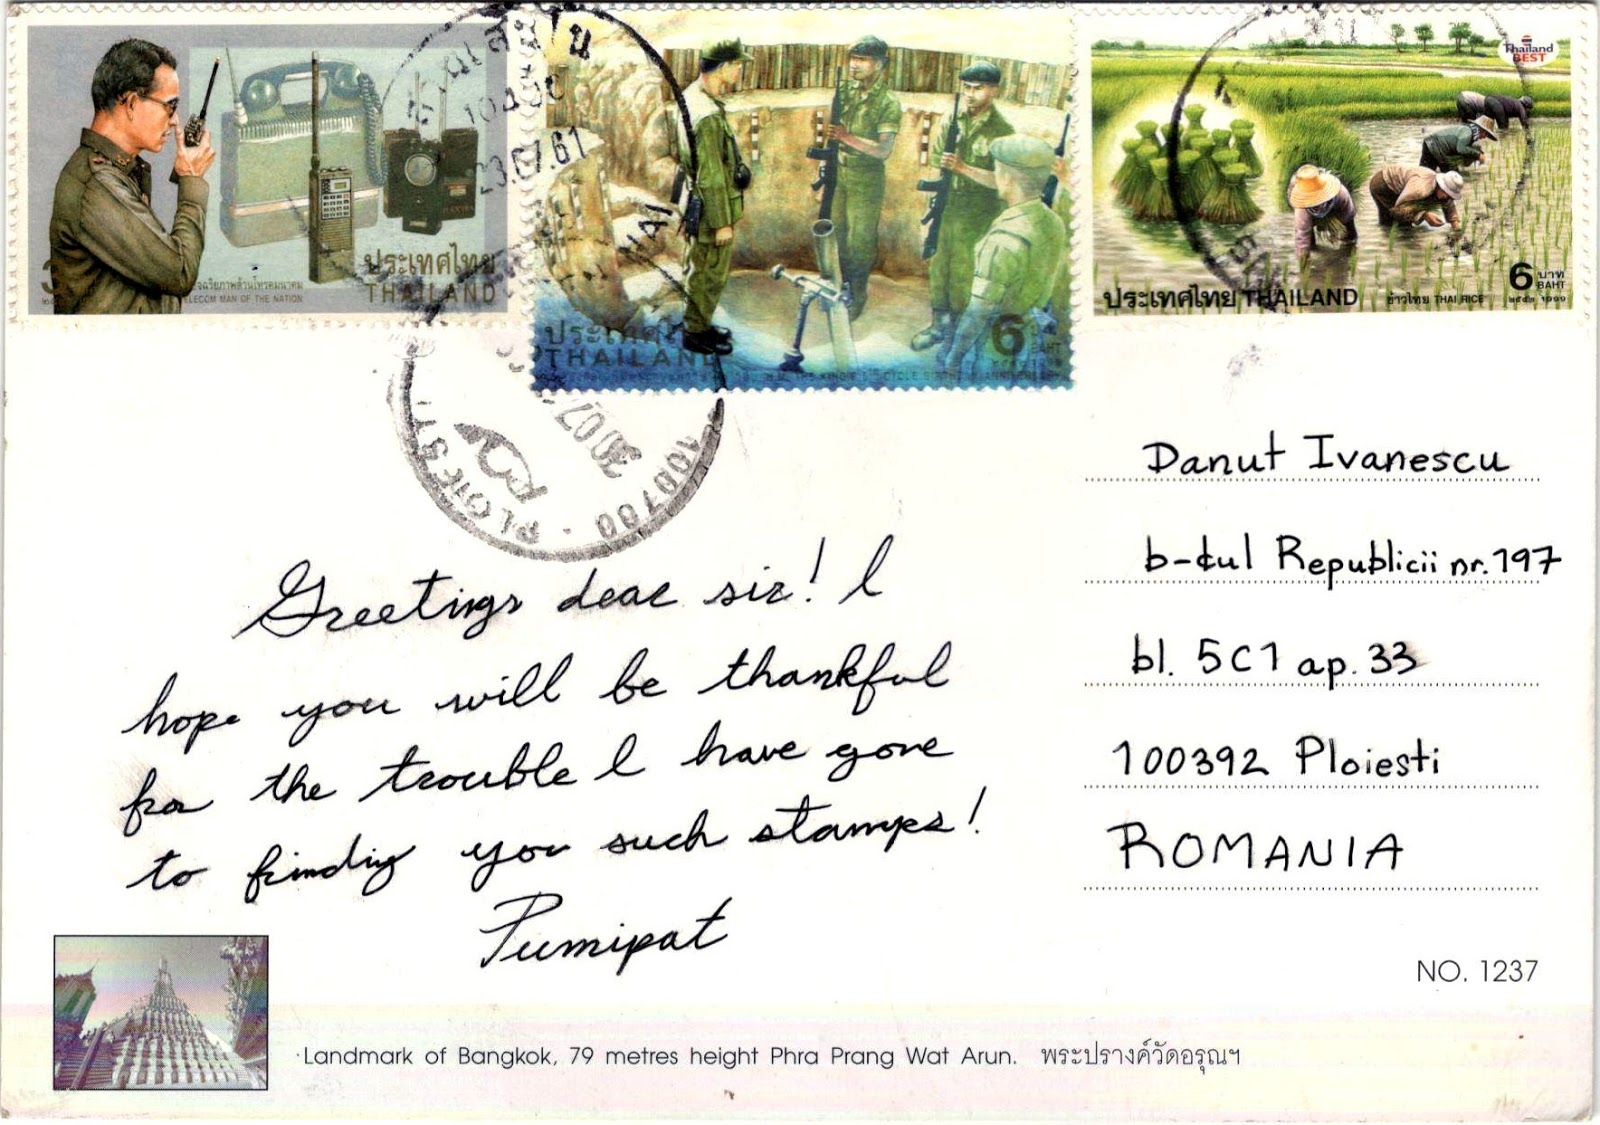 ประเทศไทย
THAILAND
TELECOM MAN OF THE NATION
23.07.61
THAILAND
6
Thailand
BEST
ประเทศไทย THAILAND ข้าวไทย THAI RICE 6 บาท BAHT
๒๕๔๒ 1999
100700 · PLOIESTI
Greetings dear sir! I
hope you will be thankful
for the trouble I have gone
to finding you such stamps!
Pumipat
Danut Ivanescu
b-dul Republicii nr. 197
bl. 5C1 ap. 33
100392 Ploiesti
ROMANIA
NO. 1237
Landmark of Bangkok, 79 metres height Phra Prang Wat Arun. พระปรางค์วัดอรุณฯ